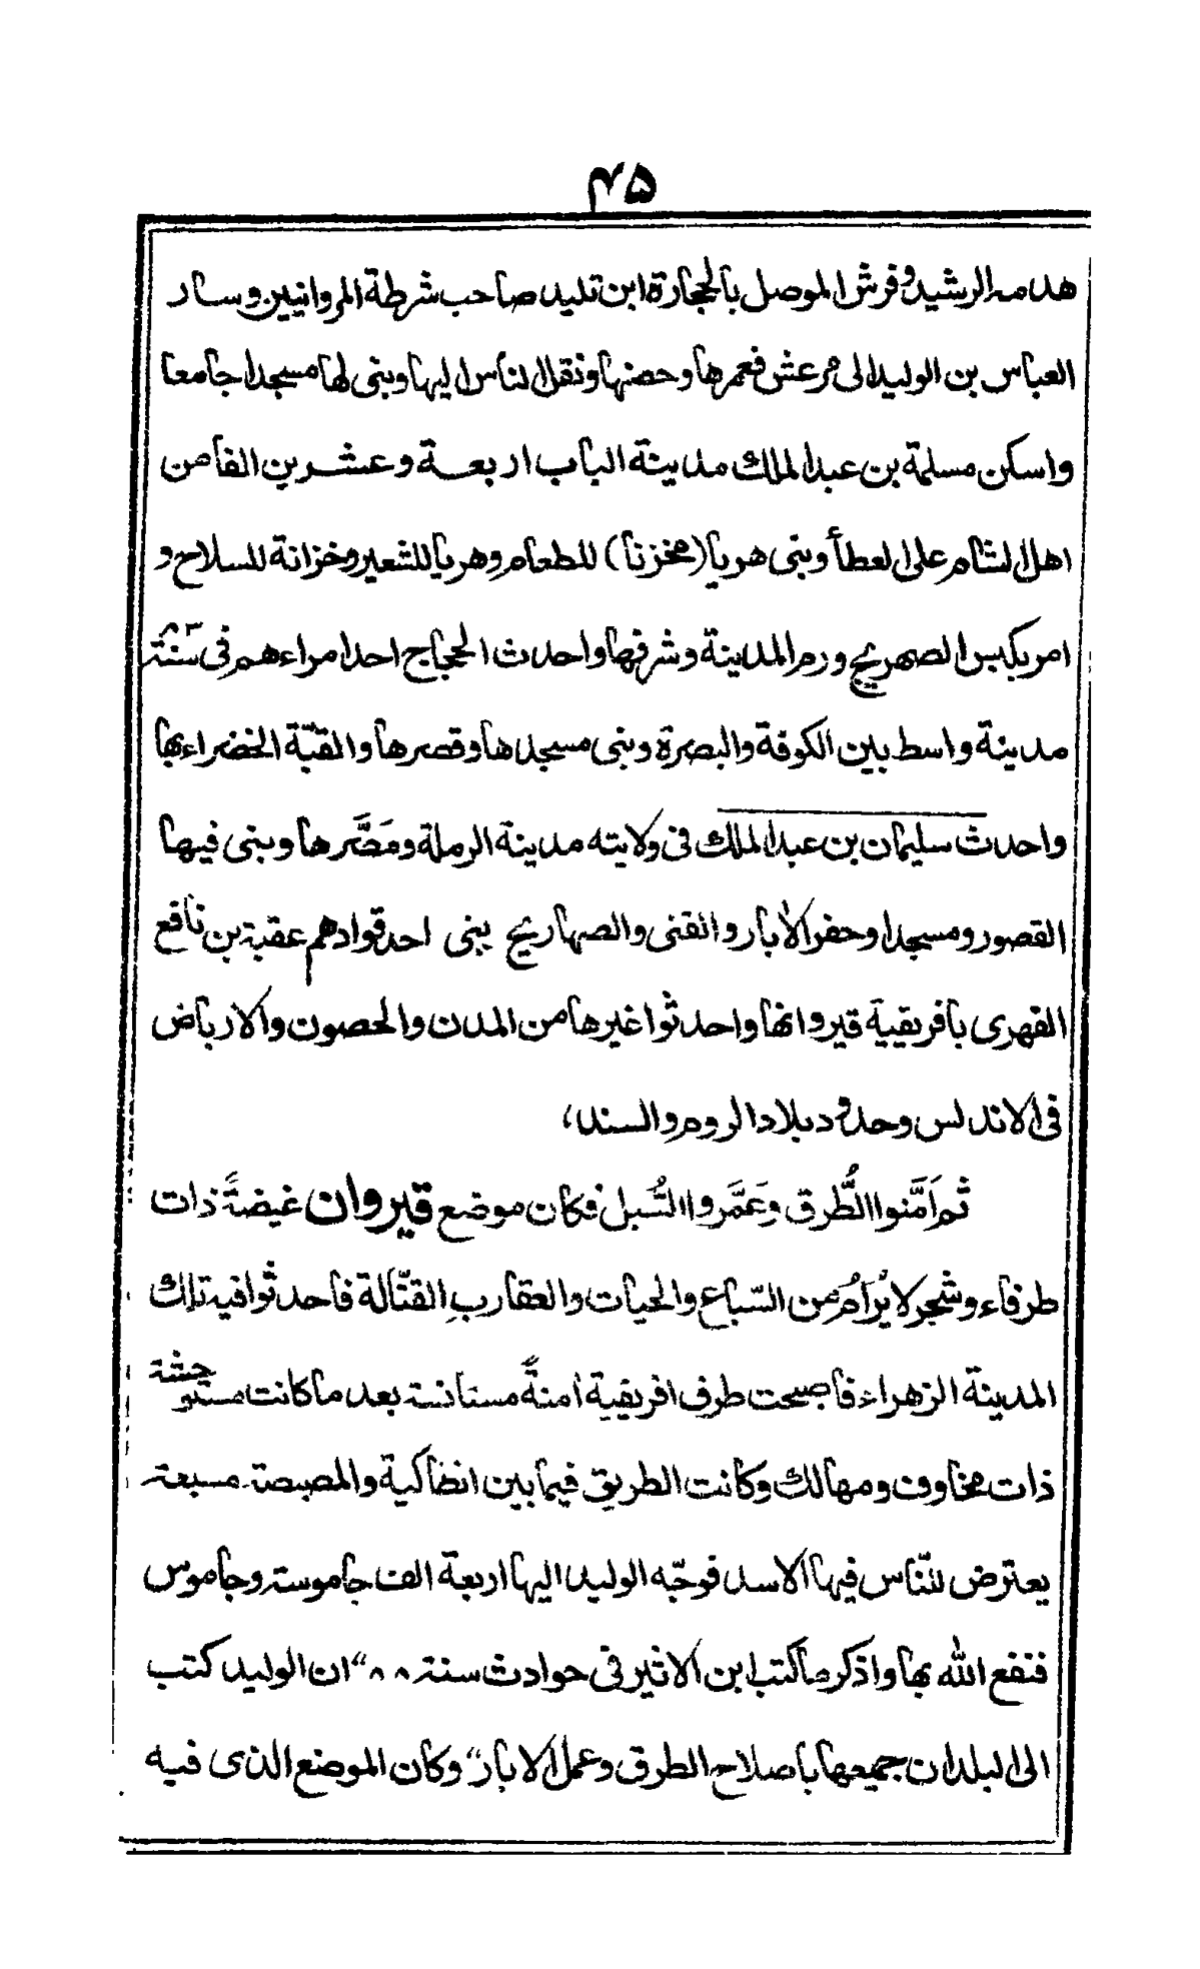 ۴۵
هدمه الرشيد وفرش الموصل بالحجارة ابن تليد صاحب شرطة المروانيين وسار
العباس بن الوليد الى مرعش فعمرها وحصنها ونقل الناس اليها وبنى لها مسجدا جامعا
واسكن مسلمة بن عبد الملك مدينة الباب اربعة وعشرين الفا من
اهل الشام على العطأ وبنى هريا (مخزنا) للطعام وهريا للشعير وخزانة للسلاح و
امر بكبس الصهريج ورم المدينة وشرفها واحدث الحجاج احد امراءهم فى سنة ۸۳
مدينة واسط بين الكوفة والبصرة وبنى مسجدها وقصرها والقبّة الخضراء بها
واحدث سليمان بن عبد الملك فى ولايته مدينة الرملة ومَصَّرها وبنى فيها
القصور ومسجدا وحفر الأبار والقنى والصهاريج يبنى احد قوادهم عقبة بن نافع
القهرى بافريقيية قيروانها واحدثوا غيرها من المدن والحصون والارباض
فى الاندلس وحدود بلاد الروم والسند،
ثم اَمَّنوا الطُّرق وعَمَّروا السُّبل فكان موضع قيروان غيضةً ذات
طرفاء وشجر لا يُرَامُ من السّباع والحيات والعقاربِ القتّالة فاحدثوا فيه تلك
المدينة الزهراء فاصبحت طرف افريقية اٰمنةً مستانسة بعد ما كانت مستوحشة
ذات مخاوف ومهالك وكانت الطريق فيما بين انطاكية والمصيصة مسبعة
يعترض للنّاس فيها الاسد فوجّه الوليد اليها اربعة الف جاموسة وجاموس
فنفع الله بها واذكر ما كتب ابن الاثير فى حوادث سنة ۸۸ "ان الوليد كتب
الى البلدان جميعها باصلاح الطرق وعمل الابار" وكان الموضع الذى فيه